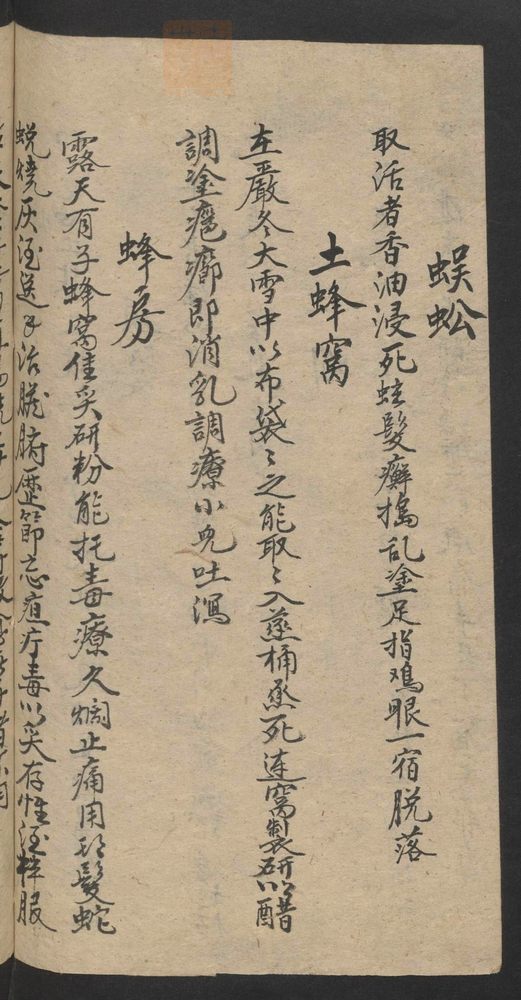 蜈蚣
取活者香油浸死蛀髮癬搗乱塗足指鳮眼一宿脱落
土蜂窩
在嚴冬大雪中以布袋〻之能取〻入蒸桶蒸死連窩製研以醋
調塗疤癤即消乳調療小兒吐瀉
蜂房
露天有子蜂窩佳炙研粉能托毒療久爛止痛用乱髮蛇
蛻燒灰酒送下治臟腑歷節惡疽疔毒以炙存性酒拌服